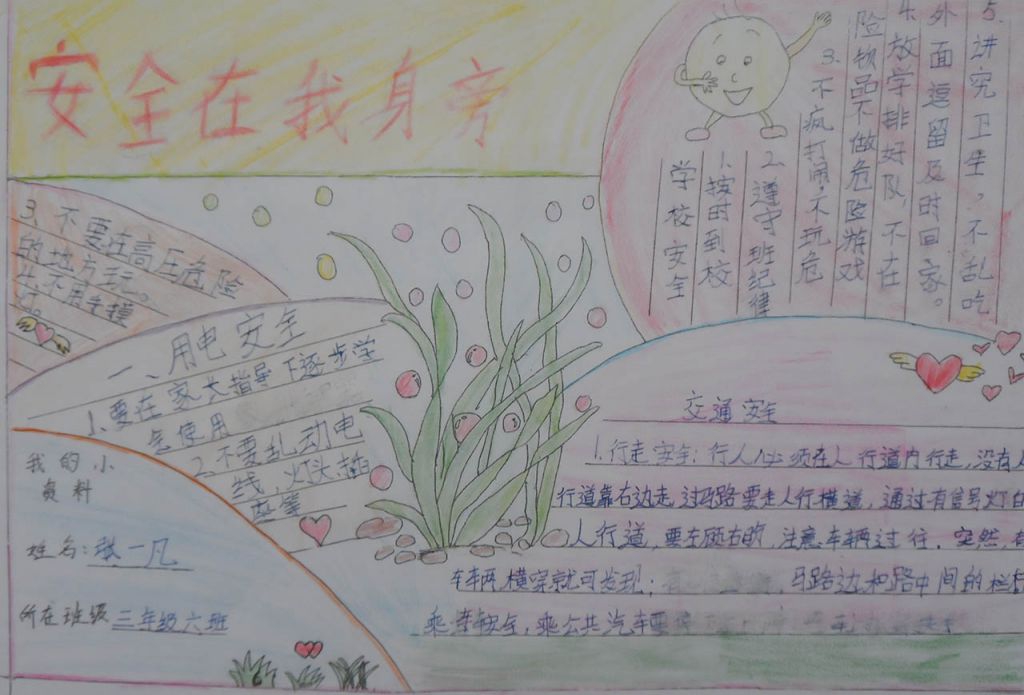 安全在我身旁
学校安全
1.按时到校
2.遵守班纪律
3.不疯打闹,不玩危
险物品不做危险游戏
4.放学排好队,不在
外面逗留及时回家。
5.讲究卫生,不乱吃
3.不要在高压危险
的地方玩。
4.不用手摸
灯。
一、用电安全
1.要在家大指导下逐步学
急使用
2.不要乱动电
线,灯头插
座等
交通安全
1.行走安全:行人必须在人行道内行走,没有人
行道靠右边走,过马路要走人行横道,通过有信号灯的
人行道,要左顾右盼,注意车辆过往.突然,有
车辆,横穿就可发现;马路边和路中间的栏
乘车安全,乘公共汽车要
我的小
资料
姓名:张一凡
所在班级 三年级六班